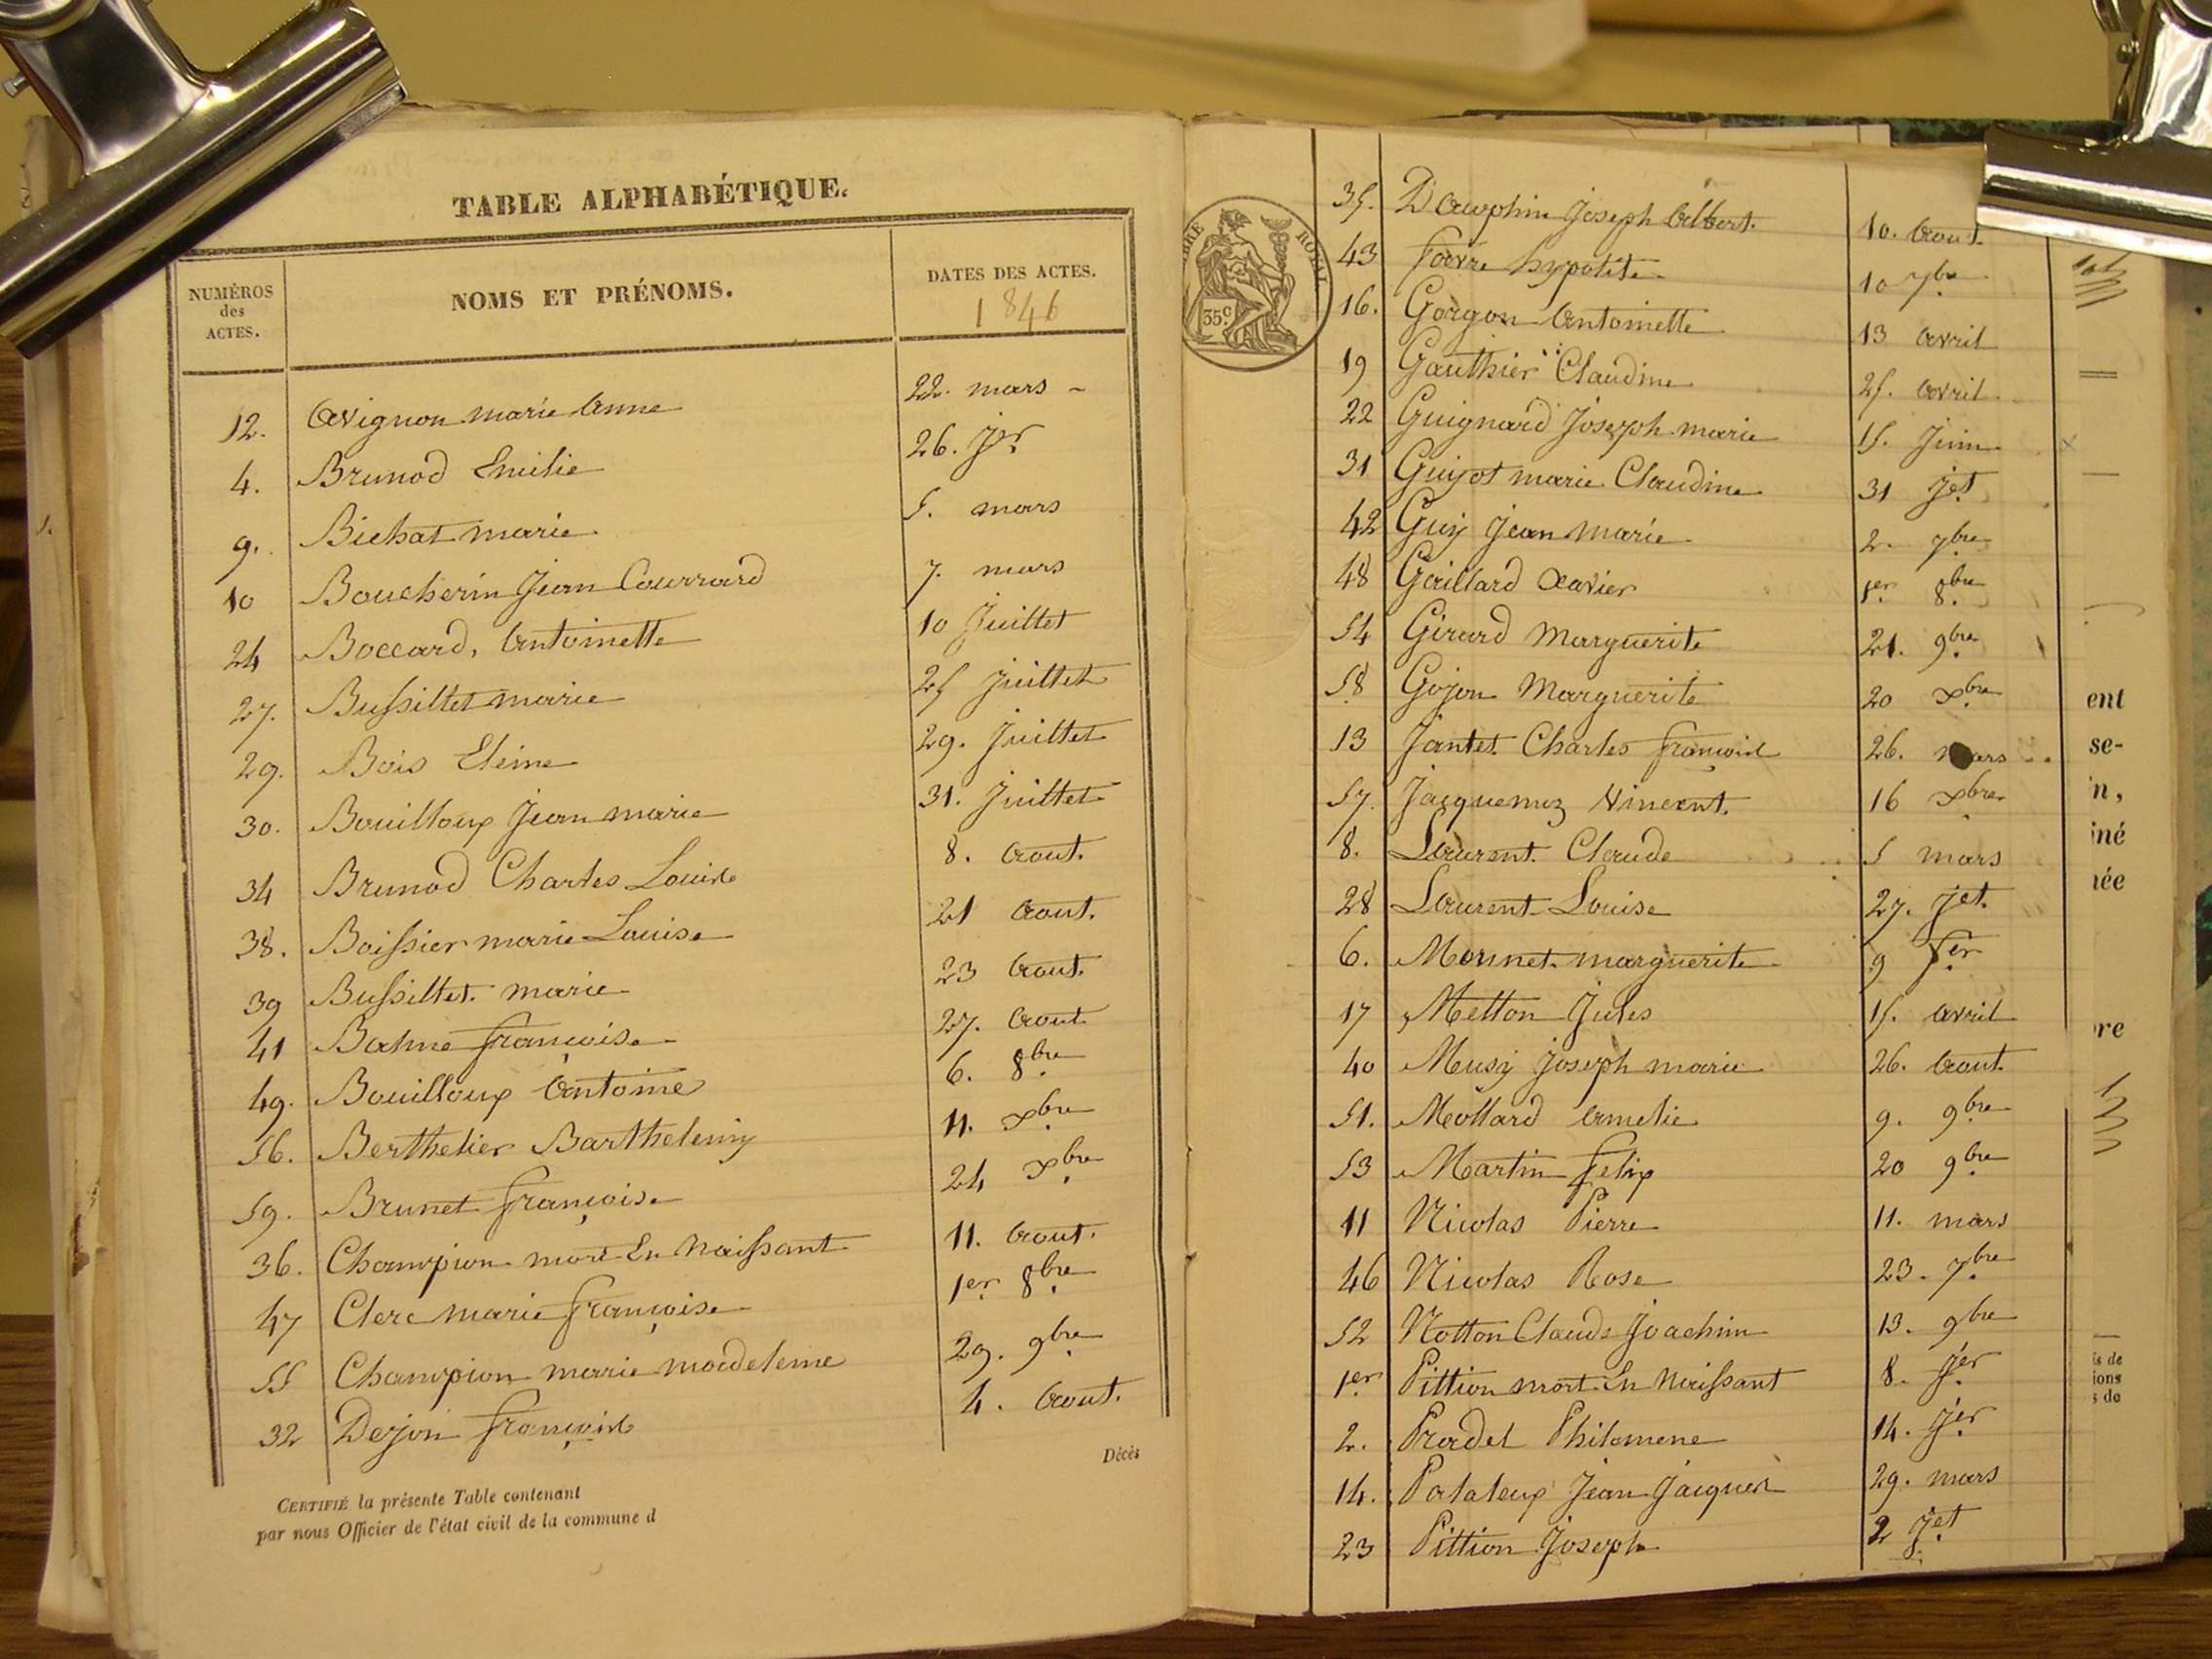 TABLE ALPHABÉTIQUE.
NUMÉROS des ACTES. NOMS ET PRÉNOMS. DATES DES ACTES.
1846
12. Avignon marie Anne 22. mars -
4. Brunod Emilie 26. jer
9. Bichat marie 5. mars
10 Boucherin Jean 7. mars
24 Boccard, Antoinette 10 Juillet
27. Bussillet marie 25 juillet
29. Bois 29. juillet
30. Bouilloux Jean marie 31. juillet
34 Brunod Charles Louis 8. Aout.
38. Boissier marie Louise 21 Aout.
39 Bussillet marie 23 Aout.
41 Balme françoise 27. Aout
49. Bouilloux Antoine 6. 8bre
56. Berthelier Barthelemy 11. Xbre
59. Brunet françoise 24 Xbre
36. Champion mort En Naissant 11. Aout.
47 Clerc marie françoise 1er 8bre
55 Champion marie madeleine 29. 9bre
32 Dejon françois 4. Aout.
Décès
CERTIFIÉ la présente Table contenant
par nous Officier de l'état civil de la commune d
ROYAL
35c
35. Dauphin Joseph Albert. 10. Aout.
43 favre hypolite 10 7bre
16. Gorgon Antoinette 13 avril
19 Gauthier Claudine 25. avril
22 Guignard Joseph marie 15. Juin
31 Guyot marie Claudine 31 jet
42 Guy Jean marie 2. 7bre
48 Gaillard Xavier 1er 8bre
54 Girard Marguerite 21. 9bre
58 Gojon Marguerite 20 Xbre
13 Jantet Charles françois 26. mars
57. Jacquemoz Vincent. 16 Xbre
8. Laurent Claude 5 mars
28 Laurent Louise 27. jet.
6. Monnet marguerite 9 fer
17 Metton Jules 15. avril
40 Musy Joseph marie 26. Aout.
51. Mollard Amelie 9. 9bre
53 Martin felix 20 9bre
11 Nicolas Pierre 11. mars
46 Nicolas Rose 23. 7bre
52 Notton Claude Joachim 13. 9bre
1er Pittion mort En Naissant 8. jer
2. Pradel Philomene 14. jer
14. Pataleux Jean Jacques 29. mars
23 Pittion Joseph 2 jet
ent
se-
in,
iné
née
re
is de
ions
s de